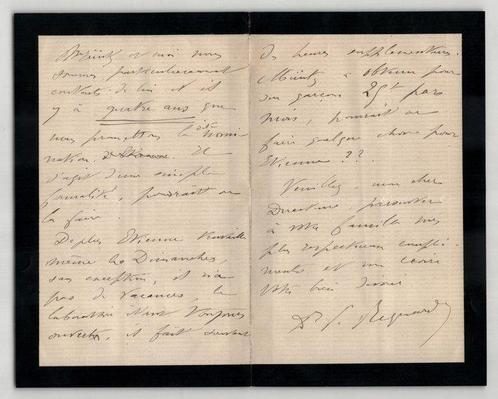 Müntz et moi nous
sommes particulièrement
contents de lui et il
y a quatre ans que
nous promettons la
nomination. 
s'agit d'une simple
formalité, pourrait on
la faire.
De plus Etienne travaille
même les Dimanches,
sans exception, et n'a
pas de vacances, le
laboratoire étant toujours
ouvert, il fait souvent
des heures supplémentaires.
Müntz a obtenu pour
son garçon 25 par
mois, pourrait on
faire quelque chose pour
Etienne ??
Veuillez, mon cher
Directeur, présenter
à votre famille mes
plus respectueux compli
ments et me croire
votre bien dévoué
Dr P. Regnard